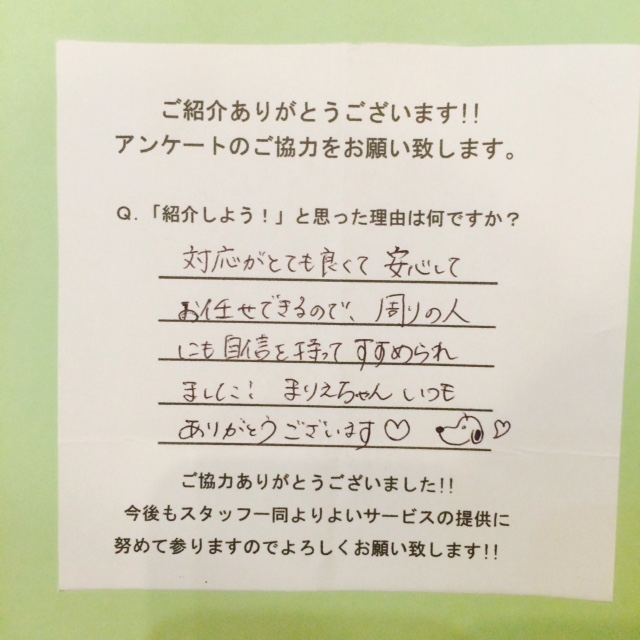 ご紹介ありがとうございます!!
アンケートのご協力をお願い致します。
Q.「紹介しよう!」と思った理由は何ですか?
対応がとても良くて 安心して
お任せできるので、周りの人
にも自信を持ってすすめられ
ました! まりえちゃん いつも
ありがとうございます♡ ♡
ご協力ありがとうございました!!
今後もスタッフ一同よりよいサービスの提供に
努めて参りますのでよろしくお願い致します!!